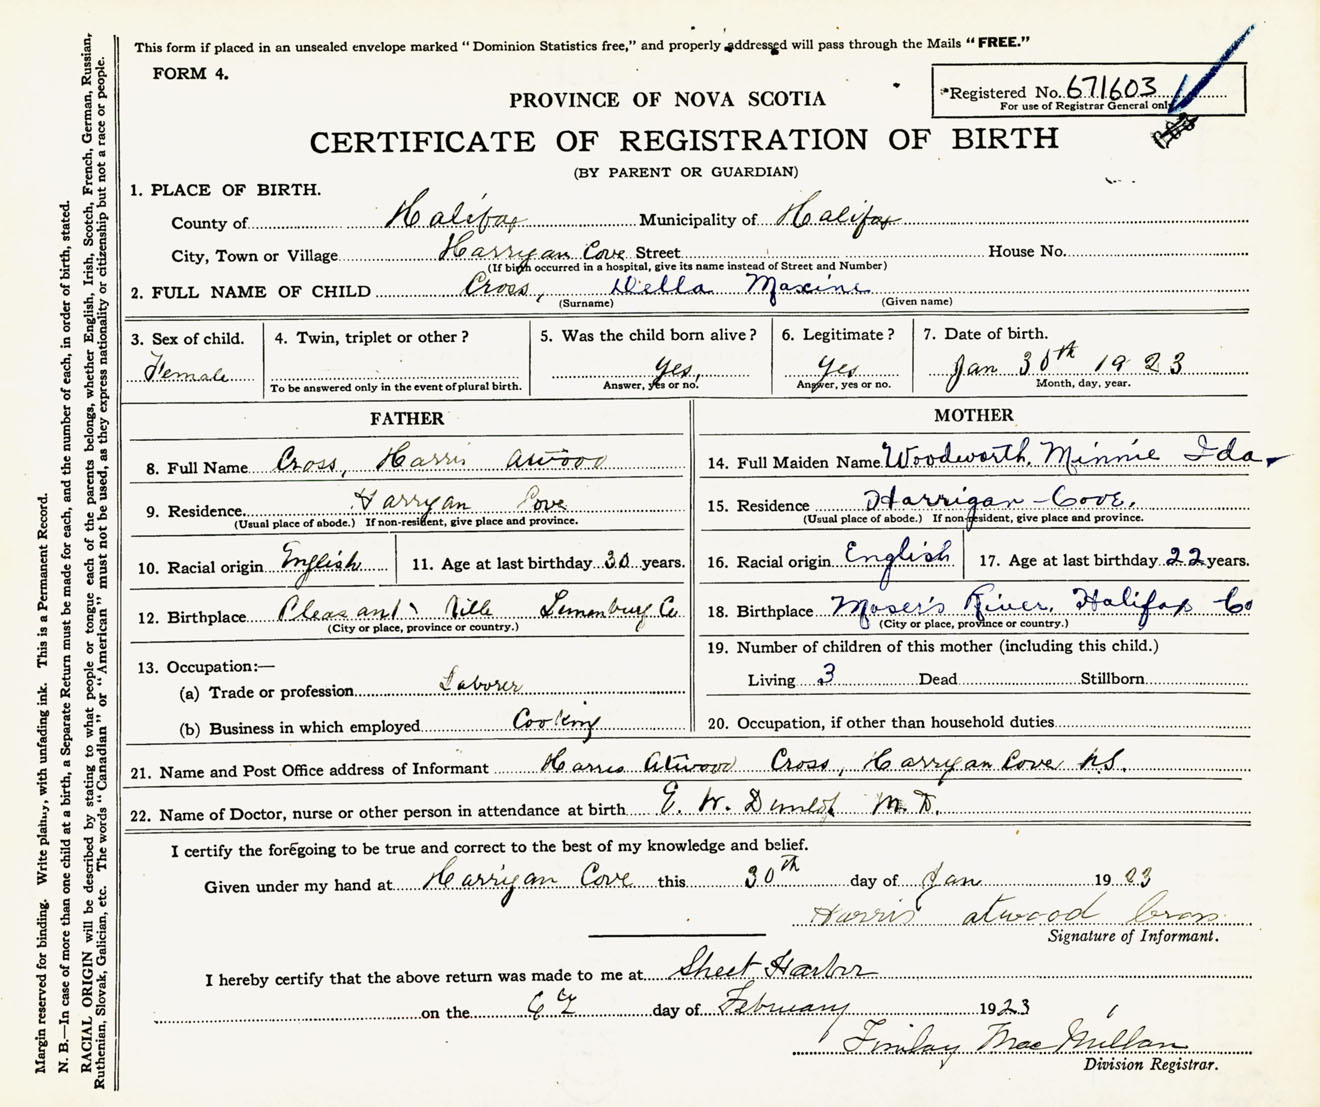 This form if placed in an unsealed envelope marked "Dominion Statistics free," and properly addressed will pass through the Mails "FREE."
FORM 4.
*Registered No. 671603
For use of Registrar General only
PROVINCE OF NOVA SCOTIA
CERTIFICATE OF REGISTRATION OF BIRTH
(BY PARENT OR GUARDIAN)
1. PLACE OF BIRTH.
County of Halifax Municipality of Halifax
City, Town or Village Harrigan Cove Street House No.
(If birth occurred in a hospital, give its name instead of Street and Number)
2. FULL NAME OF CHILD Cross, Della Maxine
(Surname) (Given name)
3. Sex of child. 4. Twin, triplet or other? 5. Was the child born alive? 6. Legitimate? 7. Date of birth.
Female Yes, Yes Jan 30th 1923
To be answered only in the event of plural birth. Answer, yes or no. Answer, yes or no. Month, day, year.
FATHER MOTHER
8. Full Name Cross, Harris Atwood 14. Full Maiden Name Woodworth, Minnie Ida
9. Residence Harrygan Cove 15. Residence Harrigan Cove,
(Usual place of abode.) If non-resident, give place and province. (Usual place of abode.) If non-resident, give place and province.
10. Racial origin English 11. Age at last birthday 30 years. 16. Racial origin English 17. Age at last birthday 22 years.
12. Birthplace Pleasant Ville Lunenburg Co 18. Birthplace Moser's River, Halifax Co
(City or place, province or country.) (City or place, province or country.)
13. Occupation:— 19. Number of children of this mother (including this child.)
(a) Trade or profession Laborer Living 3 Dead Stillborn
(b) Business in which employed Cooking 20. Occupation, if other than household duties
21. Name and Post Office address of Informant Harris Atwood Cross, Harrygan Cove N.S.
22. Name of Doctor, nurse or other person in attendance at birth E. W. Dunlop M.D.
I certify the foregoing to be true and correct to the best of my knowledge and belief.
Given under my hand at Harrigan Cove this 30th day of Jan 1923
Harris atwood Cross
Signature of Informant.
I hereby certify that the above return was made to me at Sheet Harbor
on the 6 day of February 1923
Finlay MacMillan
Division Registrar.
Margin reserved for binding. Write plainly, with unfading ink. This is a Permanent Record.
N. B.—In case of more than one child at a birth, a Separate Return must be made for each, and the number of each, in order of birth, stated.
RACIAL ORIGIN will be described by stating to what people or tongue each of the parents belongs, whether English, Irish, Scotch, French, German, Russian,
Ruthenian, Slovak, Galician, etc. The words "Canadian" or "American" must not be used, as they express nationality or citizenship but not a race or people.